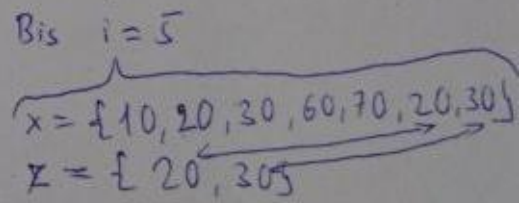 Bis i = 5
x = {10, 20, 30, 60, 70, 20, 30}
z = { 20, 30}